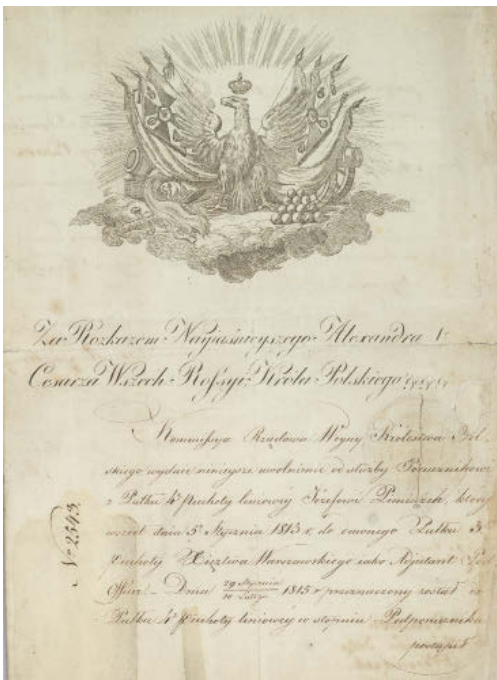 Za Rozkazem Nayiaśnieyszego Alexandra I
Cesarza Wszech Rossyi Króla Polskiego
Kommissya Rządowa Woyny Królestwa Pol-
skiego wydaie ninieysze uwolnienie od służby Porucznikowi
z Pułku 4º Piechoty liniowéy Józefowi który
wszedł dnia 5º Stycznia 1813 r. do Pułku 3º
Piechoty Xięztwa Warszawskiego iako Adjutant Pod
Offir. Dnia 29 Stycznia
10 Lutego 1815 r przeznaczony został do
Pułku 4º Piechoty liniowéy w stopniu Podporucznika
postąpił
No 2543